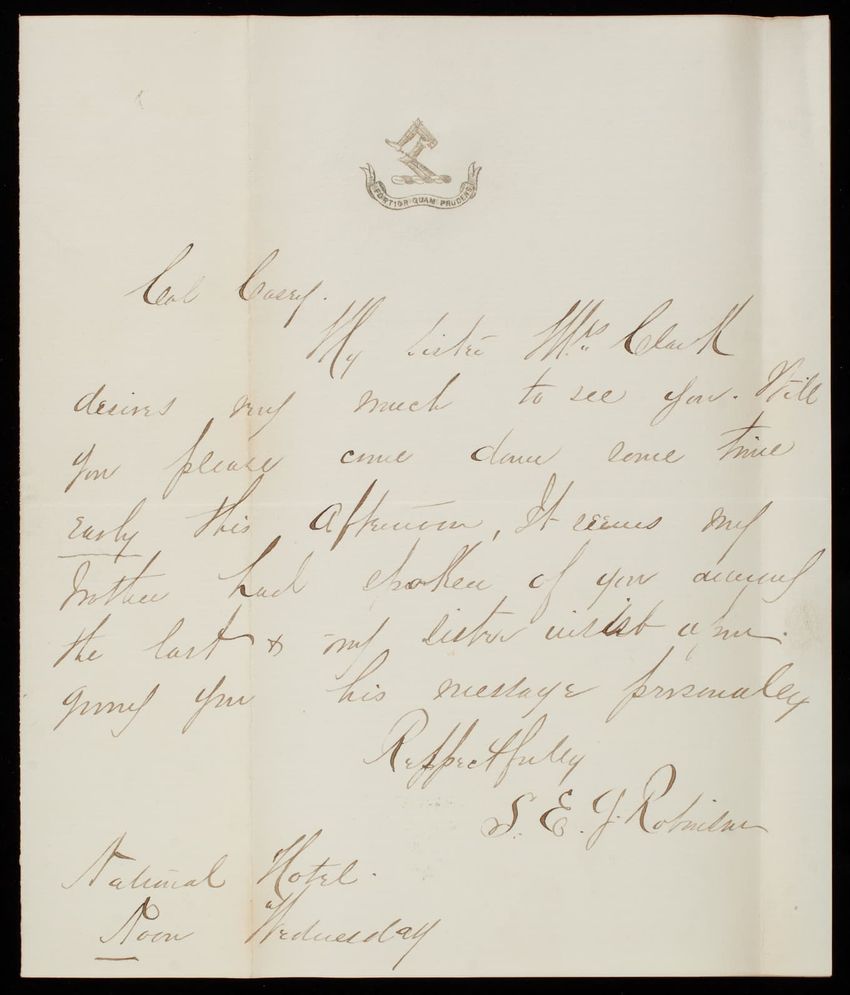 FORTIOR QUAM PRUDENS
Col Casey.
My sister Mrs. Clark
desires very much to see you. Will
you please come down some time
early this afternoon, It seems my
brother had spoken of you among
the last & my sister insist upon
giving you his message personally
Respectfully
S. E. J. Robinson
National Hotel.
Noon Wednesday